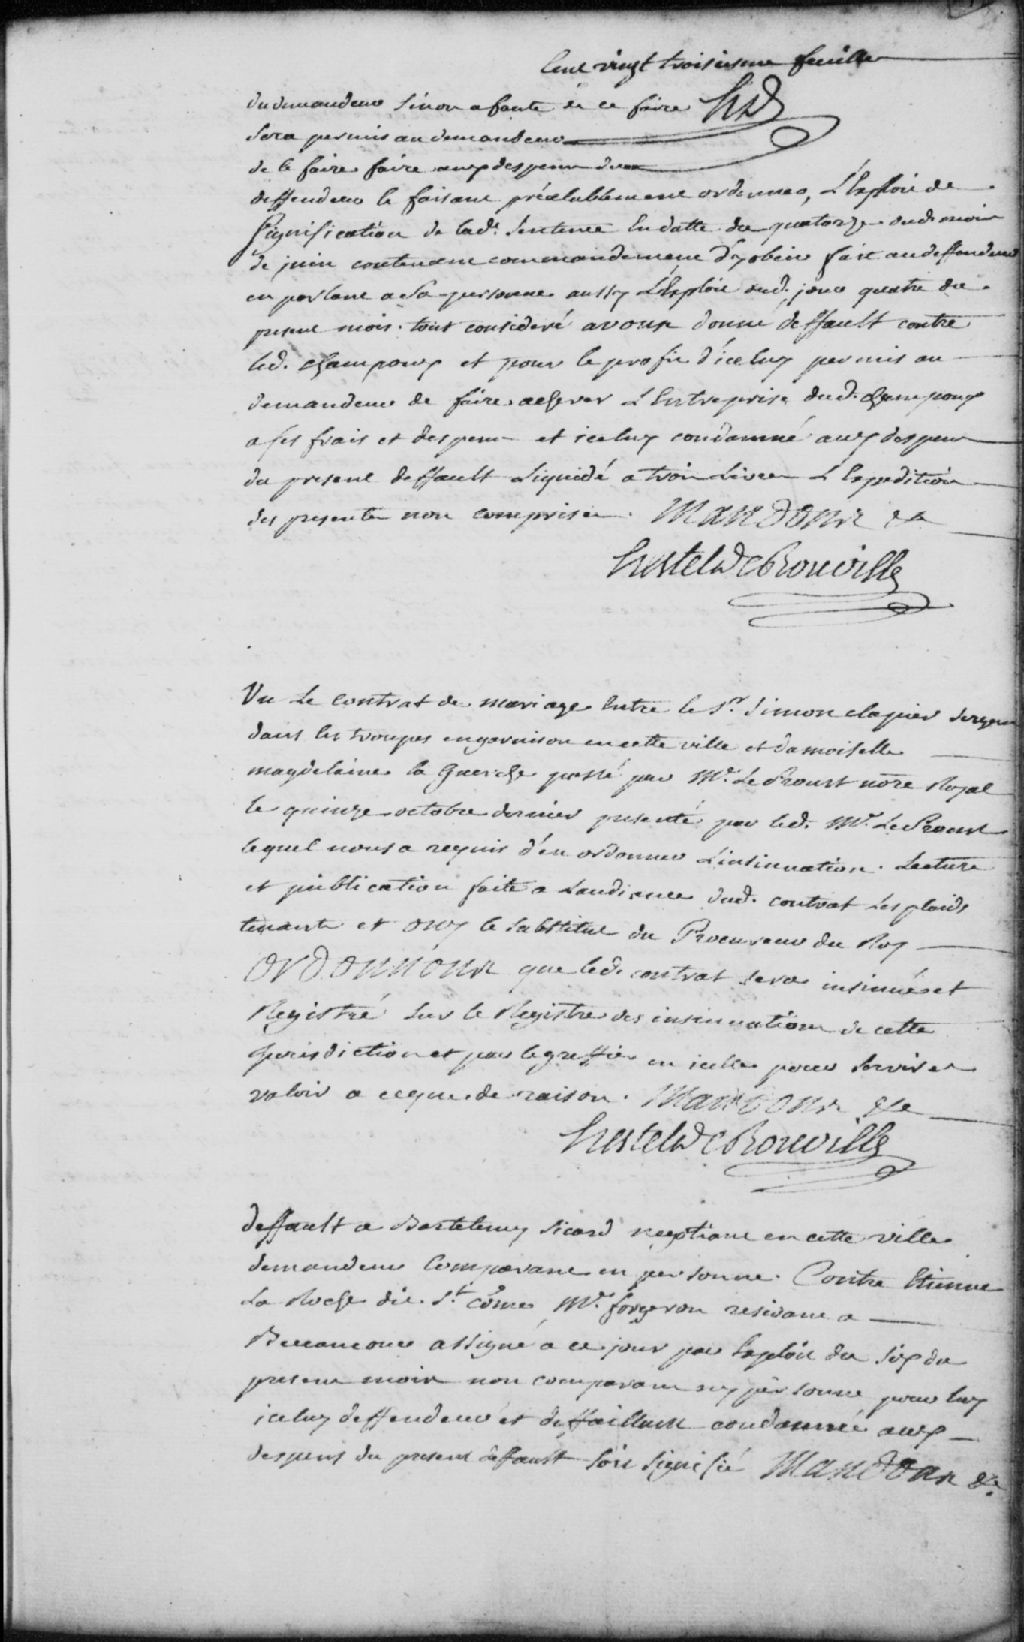 Cent vingt troisieme feuille
du demandeur sinon a faute de ce faire HsD
sera permis au demandeur
de le faire faire aux despens du
deffendeur le faisant préalablement ordonner, L'Exploit de
signification de lad. Sentence en datte du quatorze dud. mois
de juin contenant commandement d'y obeir fait au deffendeur
en parlant a sa personne aussy L'Exploit dud. jour quatre du
present mois. tout consideré avons donné deffault contre
led. Champoux et pour le profit d'iceluy permis au
demandeur de faire achever L'Entreprise dud. Champoux
a ses frais et despens et iceluy condamné aux despens
du present deffault Liquidé a trois Livres L'Expedition
des presentes non comprise. Mandons &a
hertel de Rouville
Vu Le contrat de mariage Entre le Sr. Simon clapier Sergent
dans les troupes en garnison en cette ville et damoiselle
magdelaine la Guerche passé par Me. Le Proust nore Royal
le quinze octobre dernier presenté par led. Me. Le Proust
lequel nous a requis d'en ordonner L'insinuation. Lecture
et publication faite a Laudiance dud. contrat Les plaids
tenants et ouy le substitut du Procureur du Roy
Ordonnons que led. contrat sera insinué et
Registré sur le Registre des insinuations de cette
Jurisdiction et par le greffier en icelle pour servir et
valoir a ce que de raison. Mandons &a
hertel de Rouville
deffault a Bartelemy Sicard negotiant en cette ville
demandeur Comparant en personne. Contre Etienne
La Roche dit St. Côme Me. forgeron residant a
Beccancour assigné a ce jour par Exploit du six du
present mois non comparant ny personne pour luy
iceluy deffendeur et deffaillant condamné aux
despens du present deffault soit signifié Mandons &a.